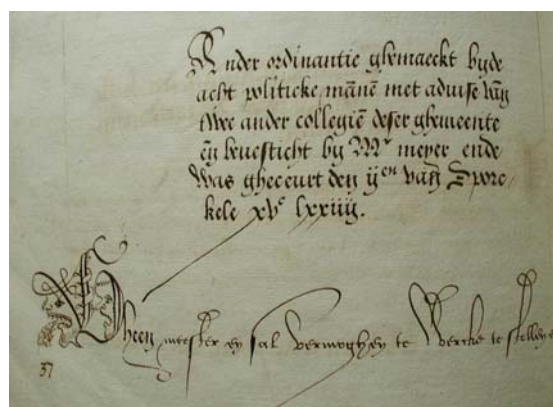 Ander ordinantie ghemaeckt byde
acht politicke mānē met aduise van
twee ander collegiē deser ghemeente
en beuesticht by Mr meyer ende
was gheceurt den ijen van Spore-
kele xvc lxxiiij.
Gheen meester en sal vermoghen te wercke te stellen
37